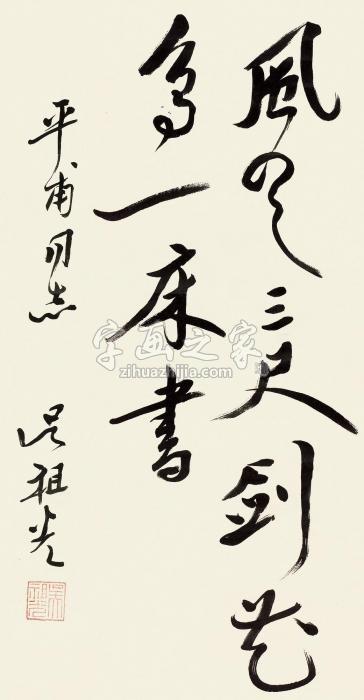 風云三尺剑花
鸟一床書
平甫同志
吴祖光
字画之家
zihuazhijia.com